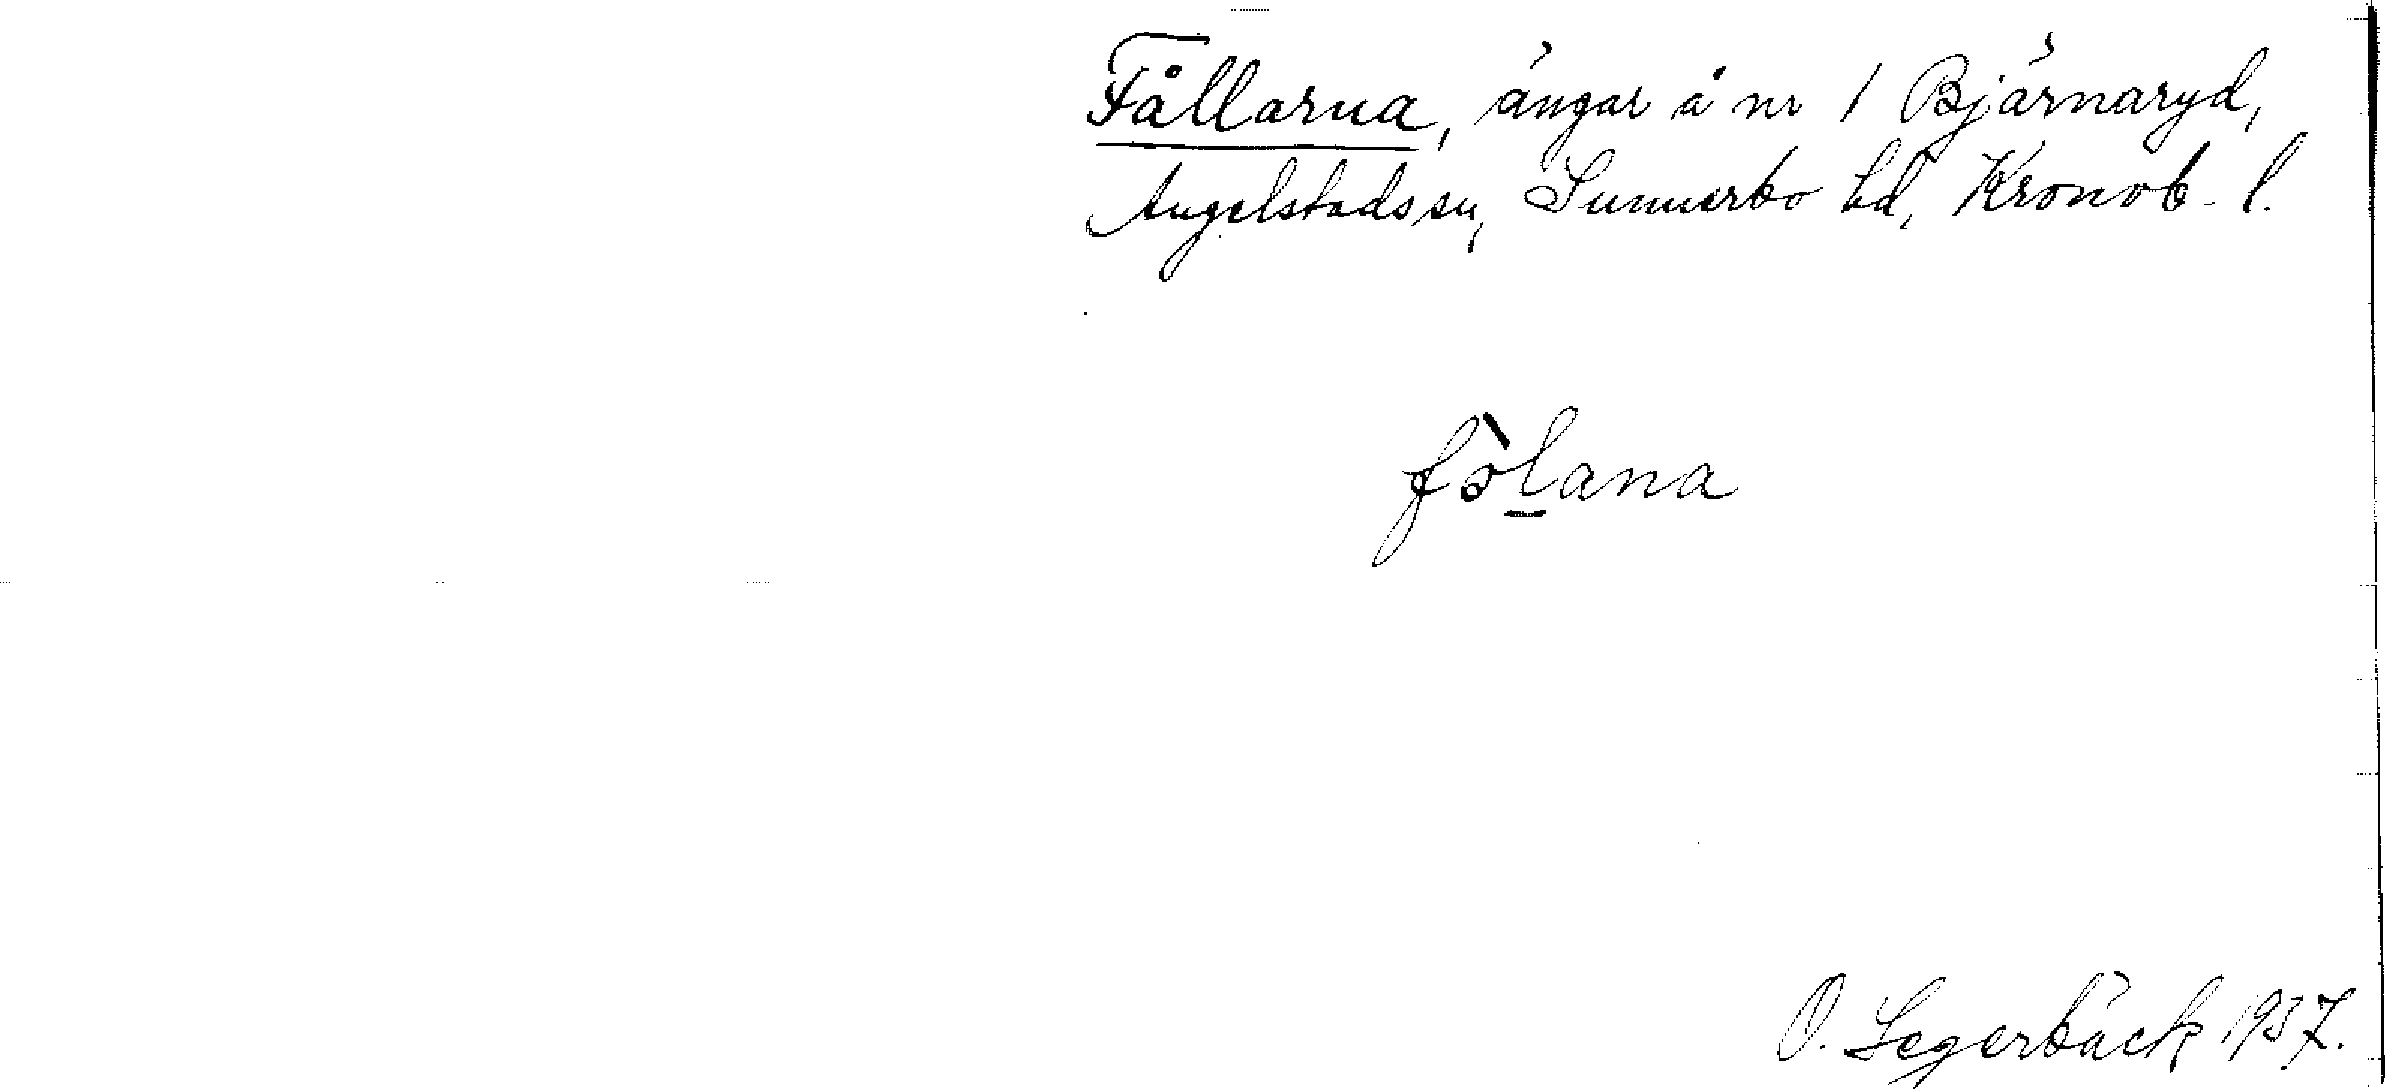 Fållarna, ängar å nr 1 Bjärnaryd,
Angelstads sn, Sunnerbo hd, Kronob. l.
fò̱lana
O. Segerbäck 1937.